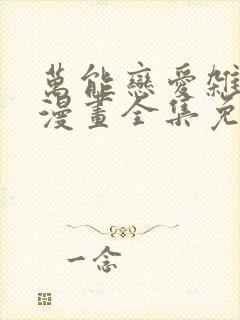 萬能戀愛雜
漫畫全集免
一念